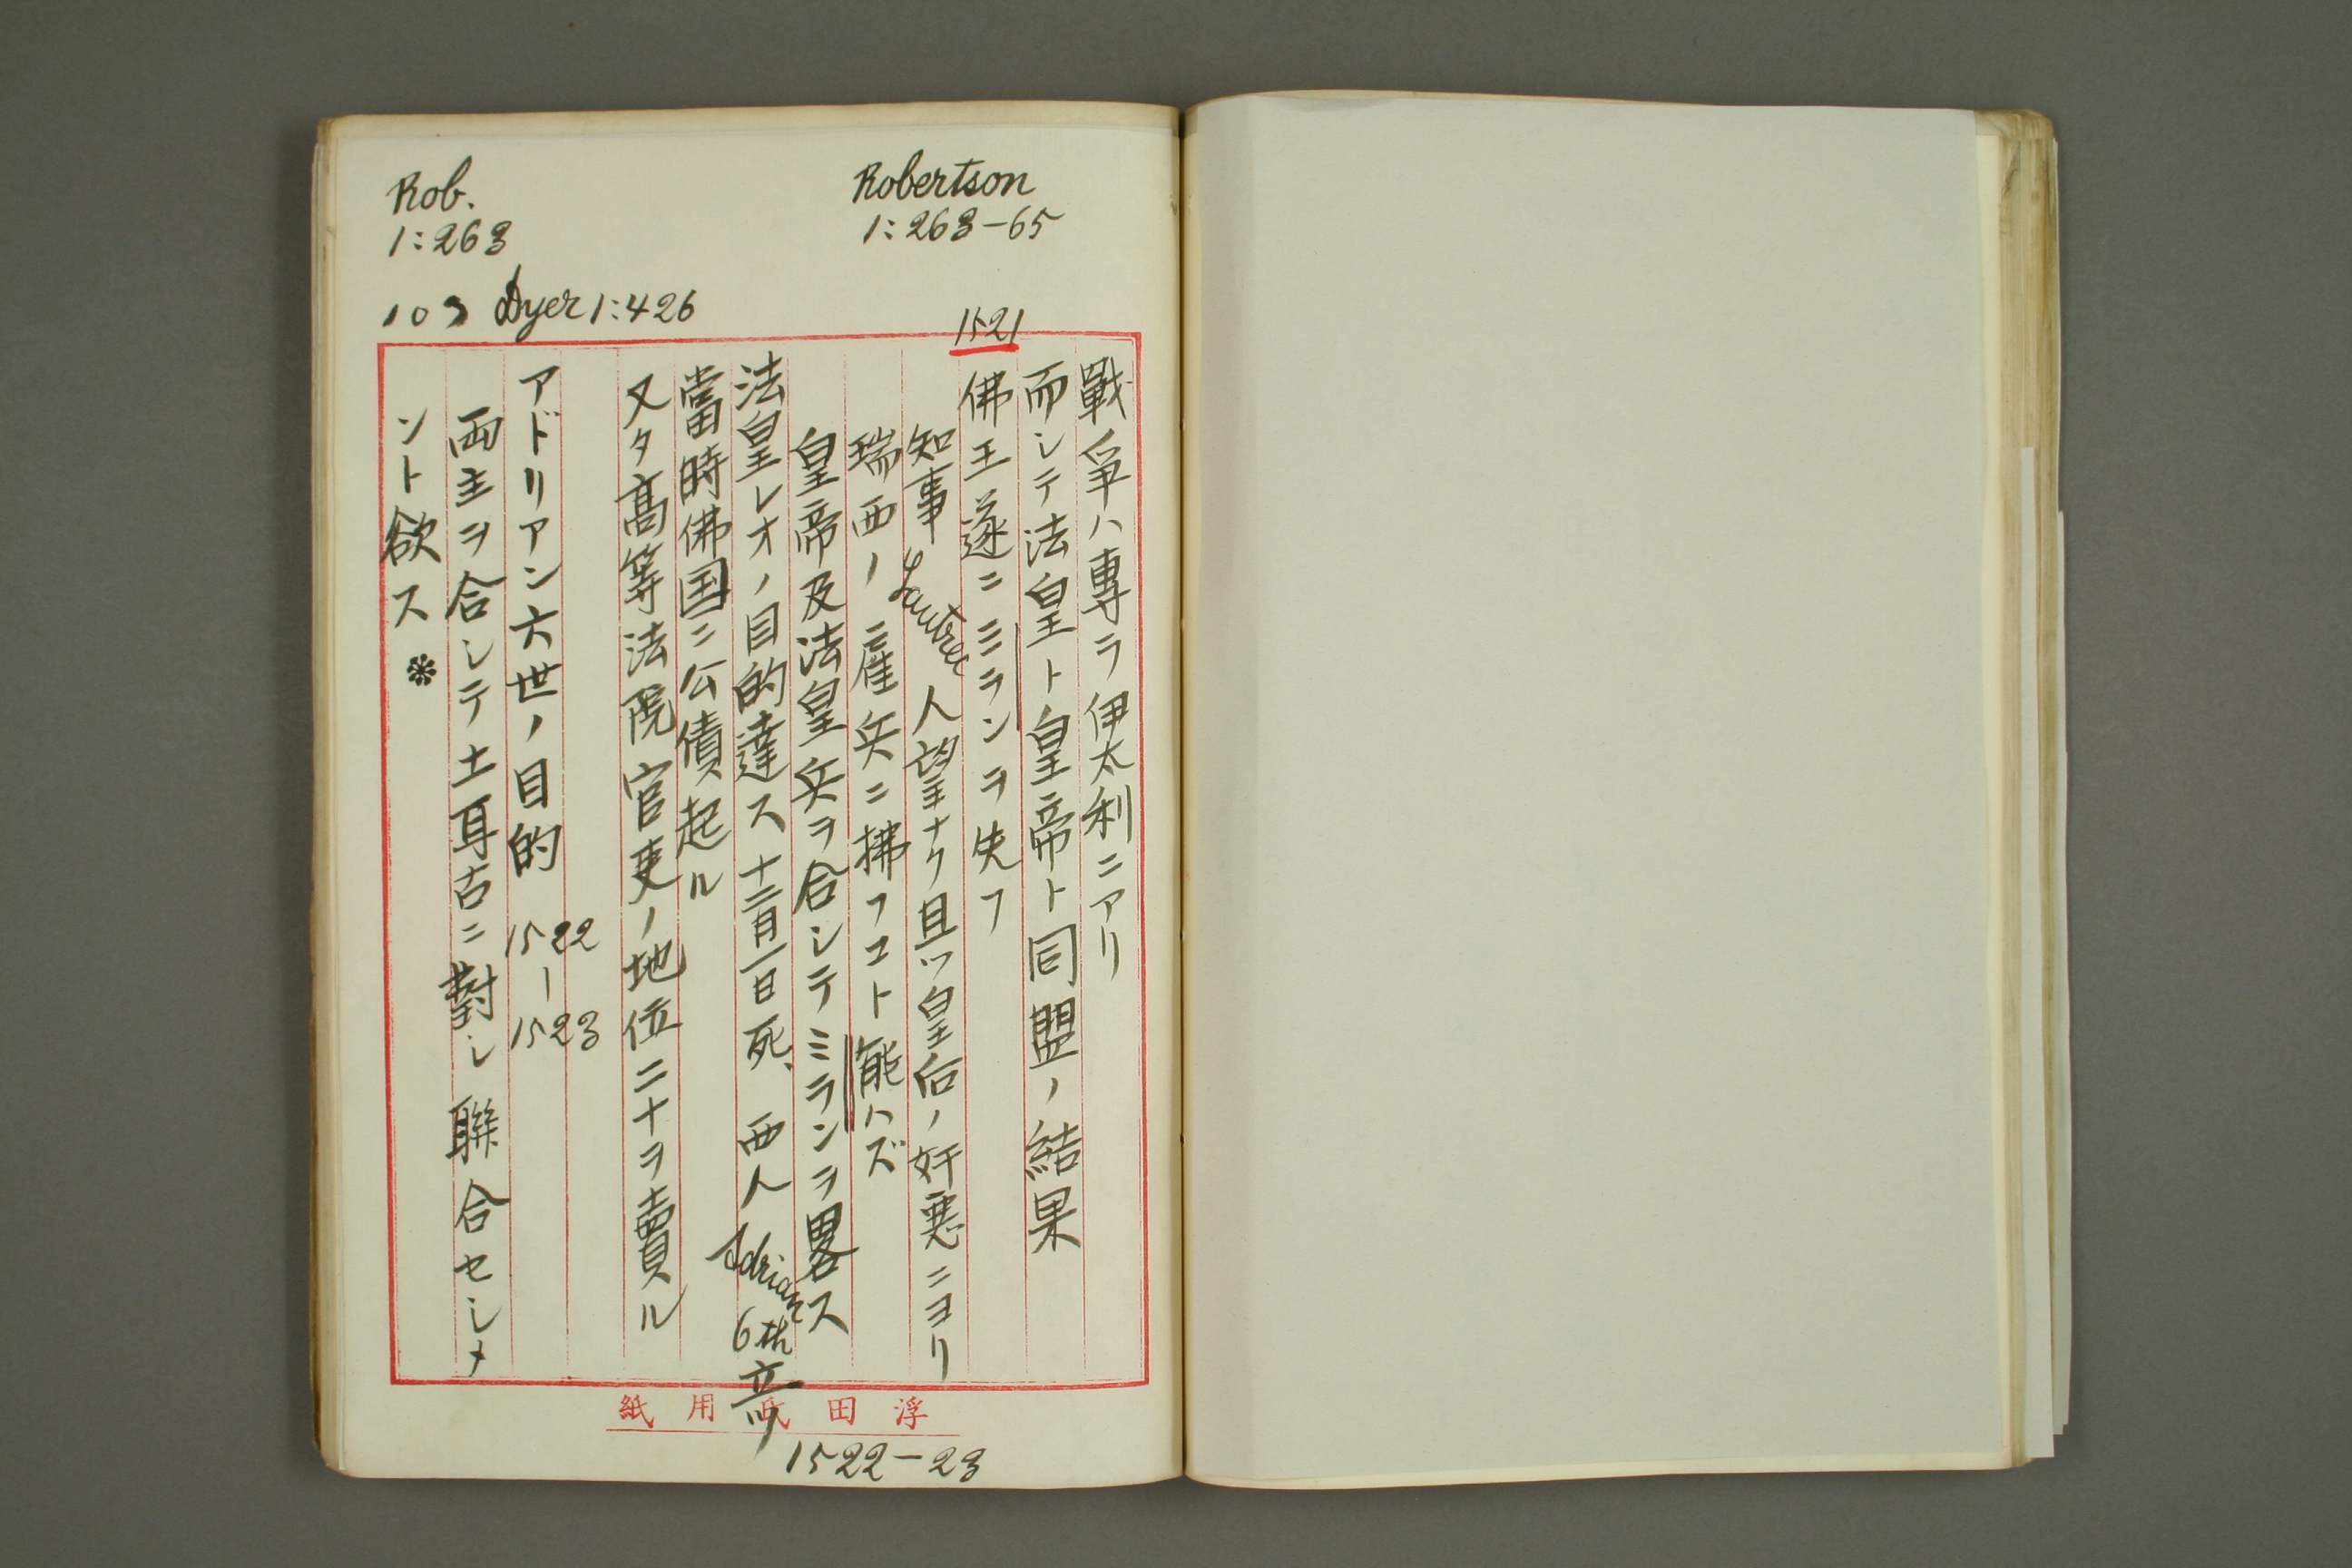 Robertson
1:263-65
Rob.
1:263
103 Dyer 1:426
1521
戰爭ハ専ラ伊太利ニアリ
而シテ法皇ト皇帝ト同盟ノ結果
佛王遂ニミランヲ失フ
知事 Lautrec 人望ナク且ツ皇后ノ奸悪ニヨリ
瑞西ノ雇兵ニ拂フコト能ハズ
皇帝及法皇兵ヲ合シテミランヲ畧ス
法皇レオノ目的達ス 十二月一日死、西人 Adrian 6th 立ツ
1522-23
當時佛国ニ公債起ル
又タ高等法院官吏ノ地位二十ヲ賣ル
アドリアン六世ノ目的 1522-1523
両主ヲ合シテ土耳古ニ對シ聯合セシメ
ント欲ス ※
浮田氏用紙